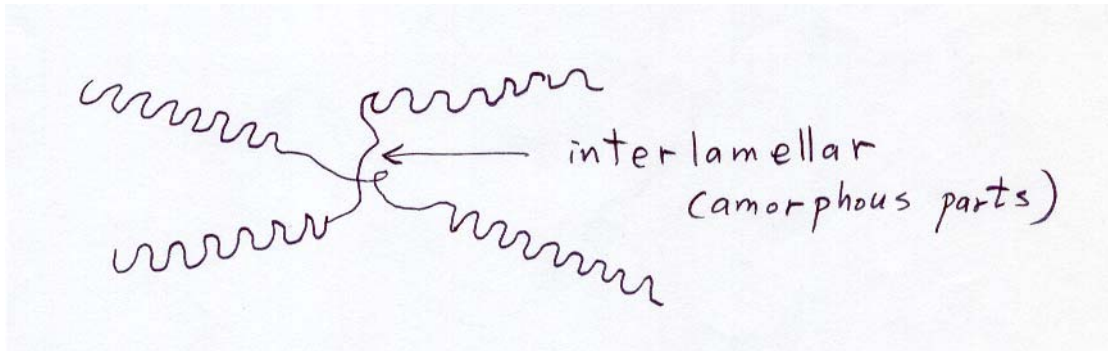 interlamellar
(amorphous parts)